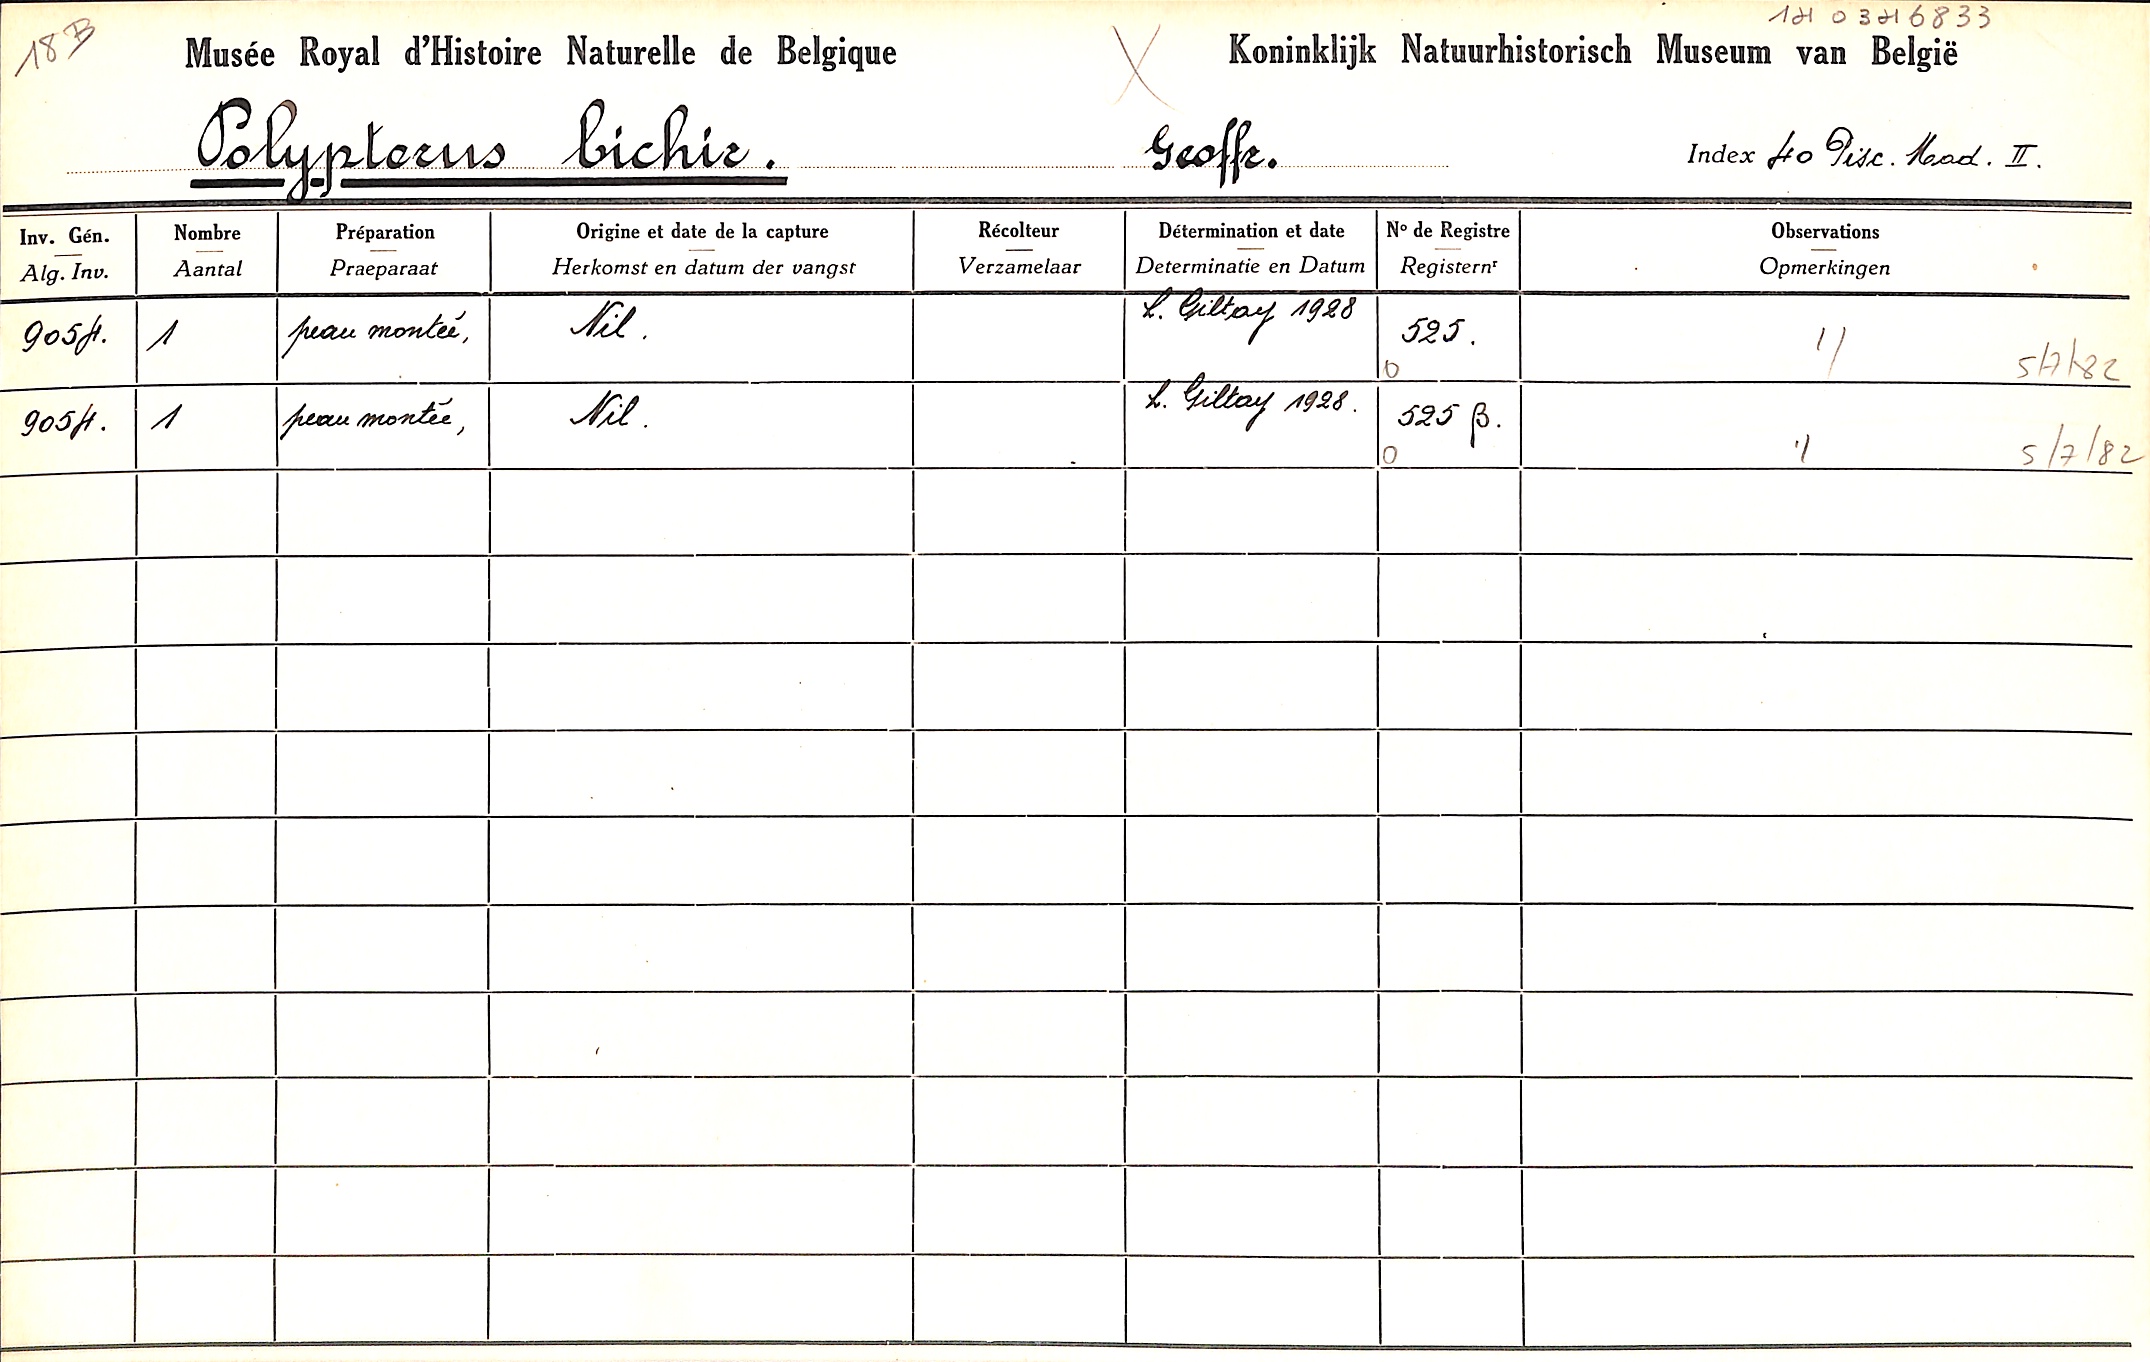 18B
Musée Royal d'Histoire Naturelle de Belgique
Koninklijk Natuurhistorisch Museum van België
Polypterus bichir. Geoffr. Index 40 Pisc. Mad. II.
Inv. Gén. Nombre Préparation Origine et date de la capture Récolteur Détermination et date Nº de Registre Observations
Alg. Inv. Aantal Praeparaat Herkomst en datum der vangst Verzamelaar Determinatie en Datum Registernr Opmerkingen
9054. 1 peau montée, Nil. L. Giltay 1928 525. 5/7/82
0
9054. 1 peau montée, Nil. L. Giltay 1928. 525 β. 5/7/82
0